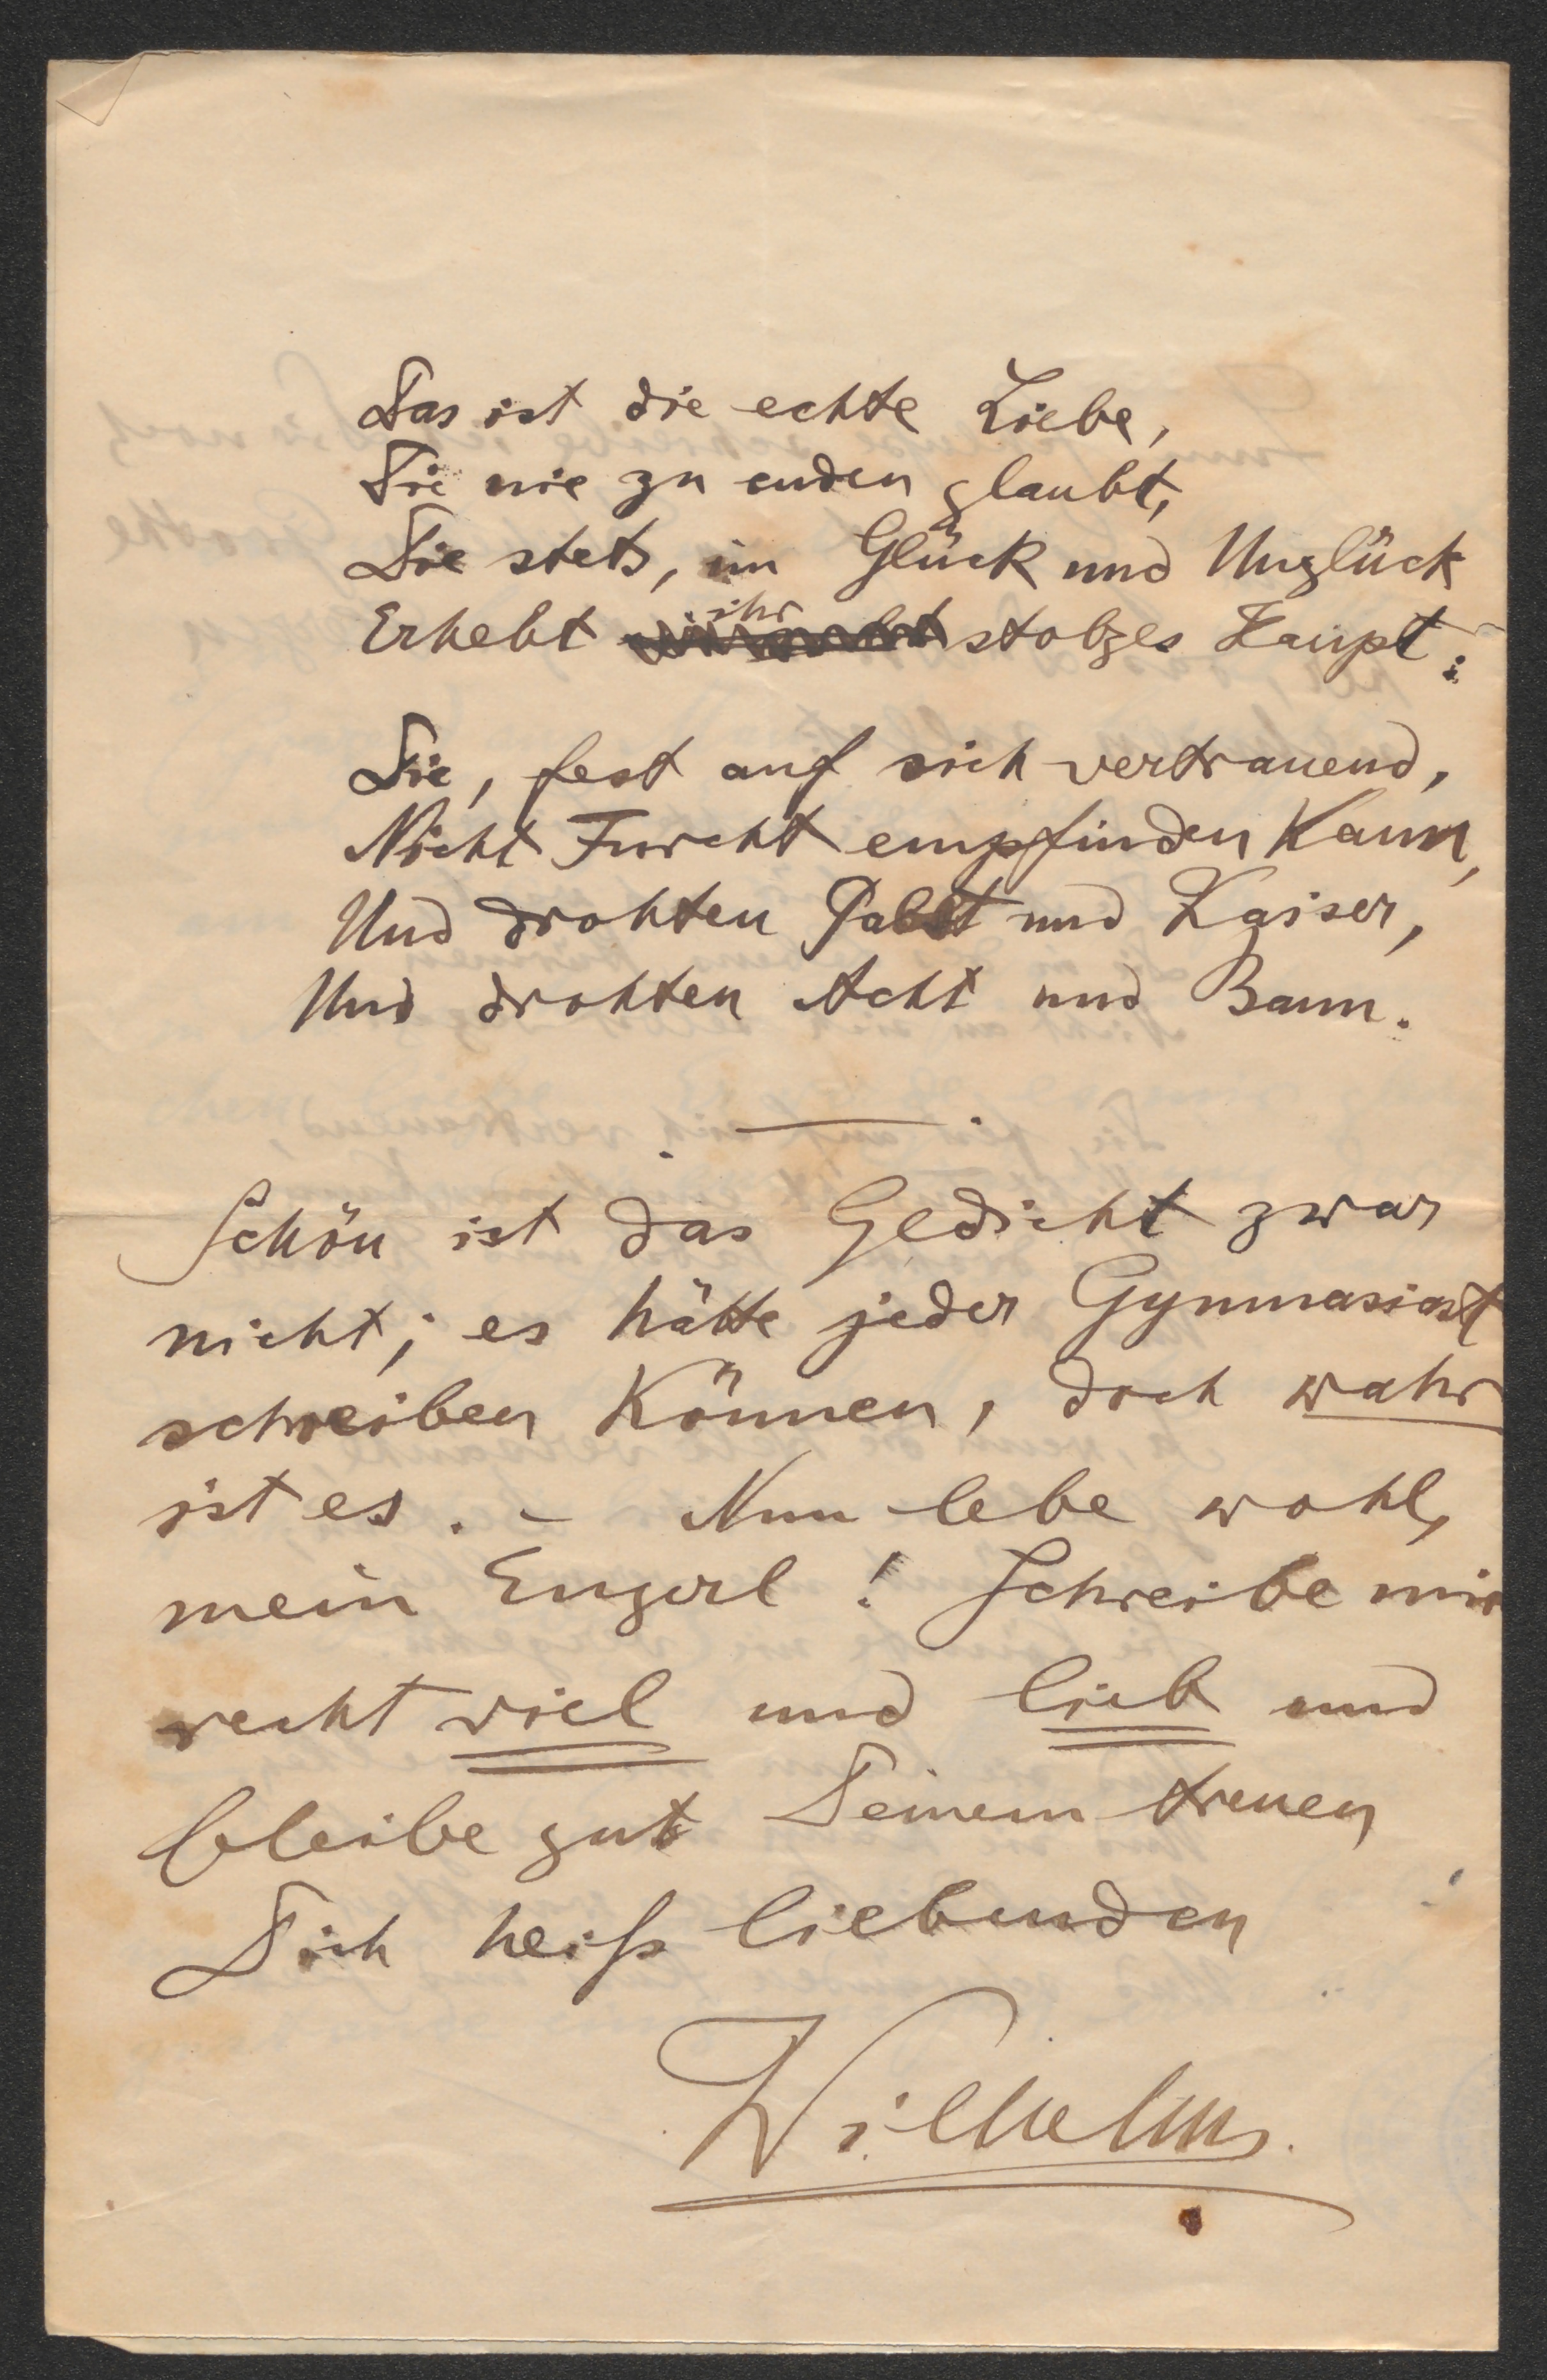 Das ist die echte Liebe,
Die nie zu enden glaubt,
Die stets, im Glück und Unglück
Erhebt ihr stolzes Haupt:
Die, fest auf sich vertrauend,
Nicht Furcht empfinden kann,
Und drohten Pabst und Kaiser,
Und drohten Acht und Bann.
Schön ist das Gedicht zwar
nicht; es hätte jeder Gymnasiast
schreiben können, doch wahr
ist es. – Nun lebe wohl,
mein Engerl! Schreibe mir
recht viel und lieb und
bleibe gut Deinem treuen
Dich heiß liebenden
Wilhelm.